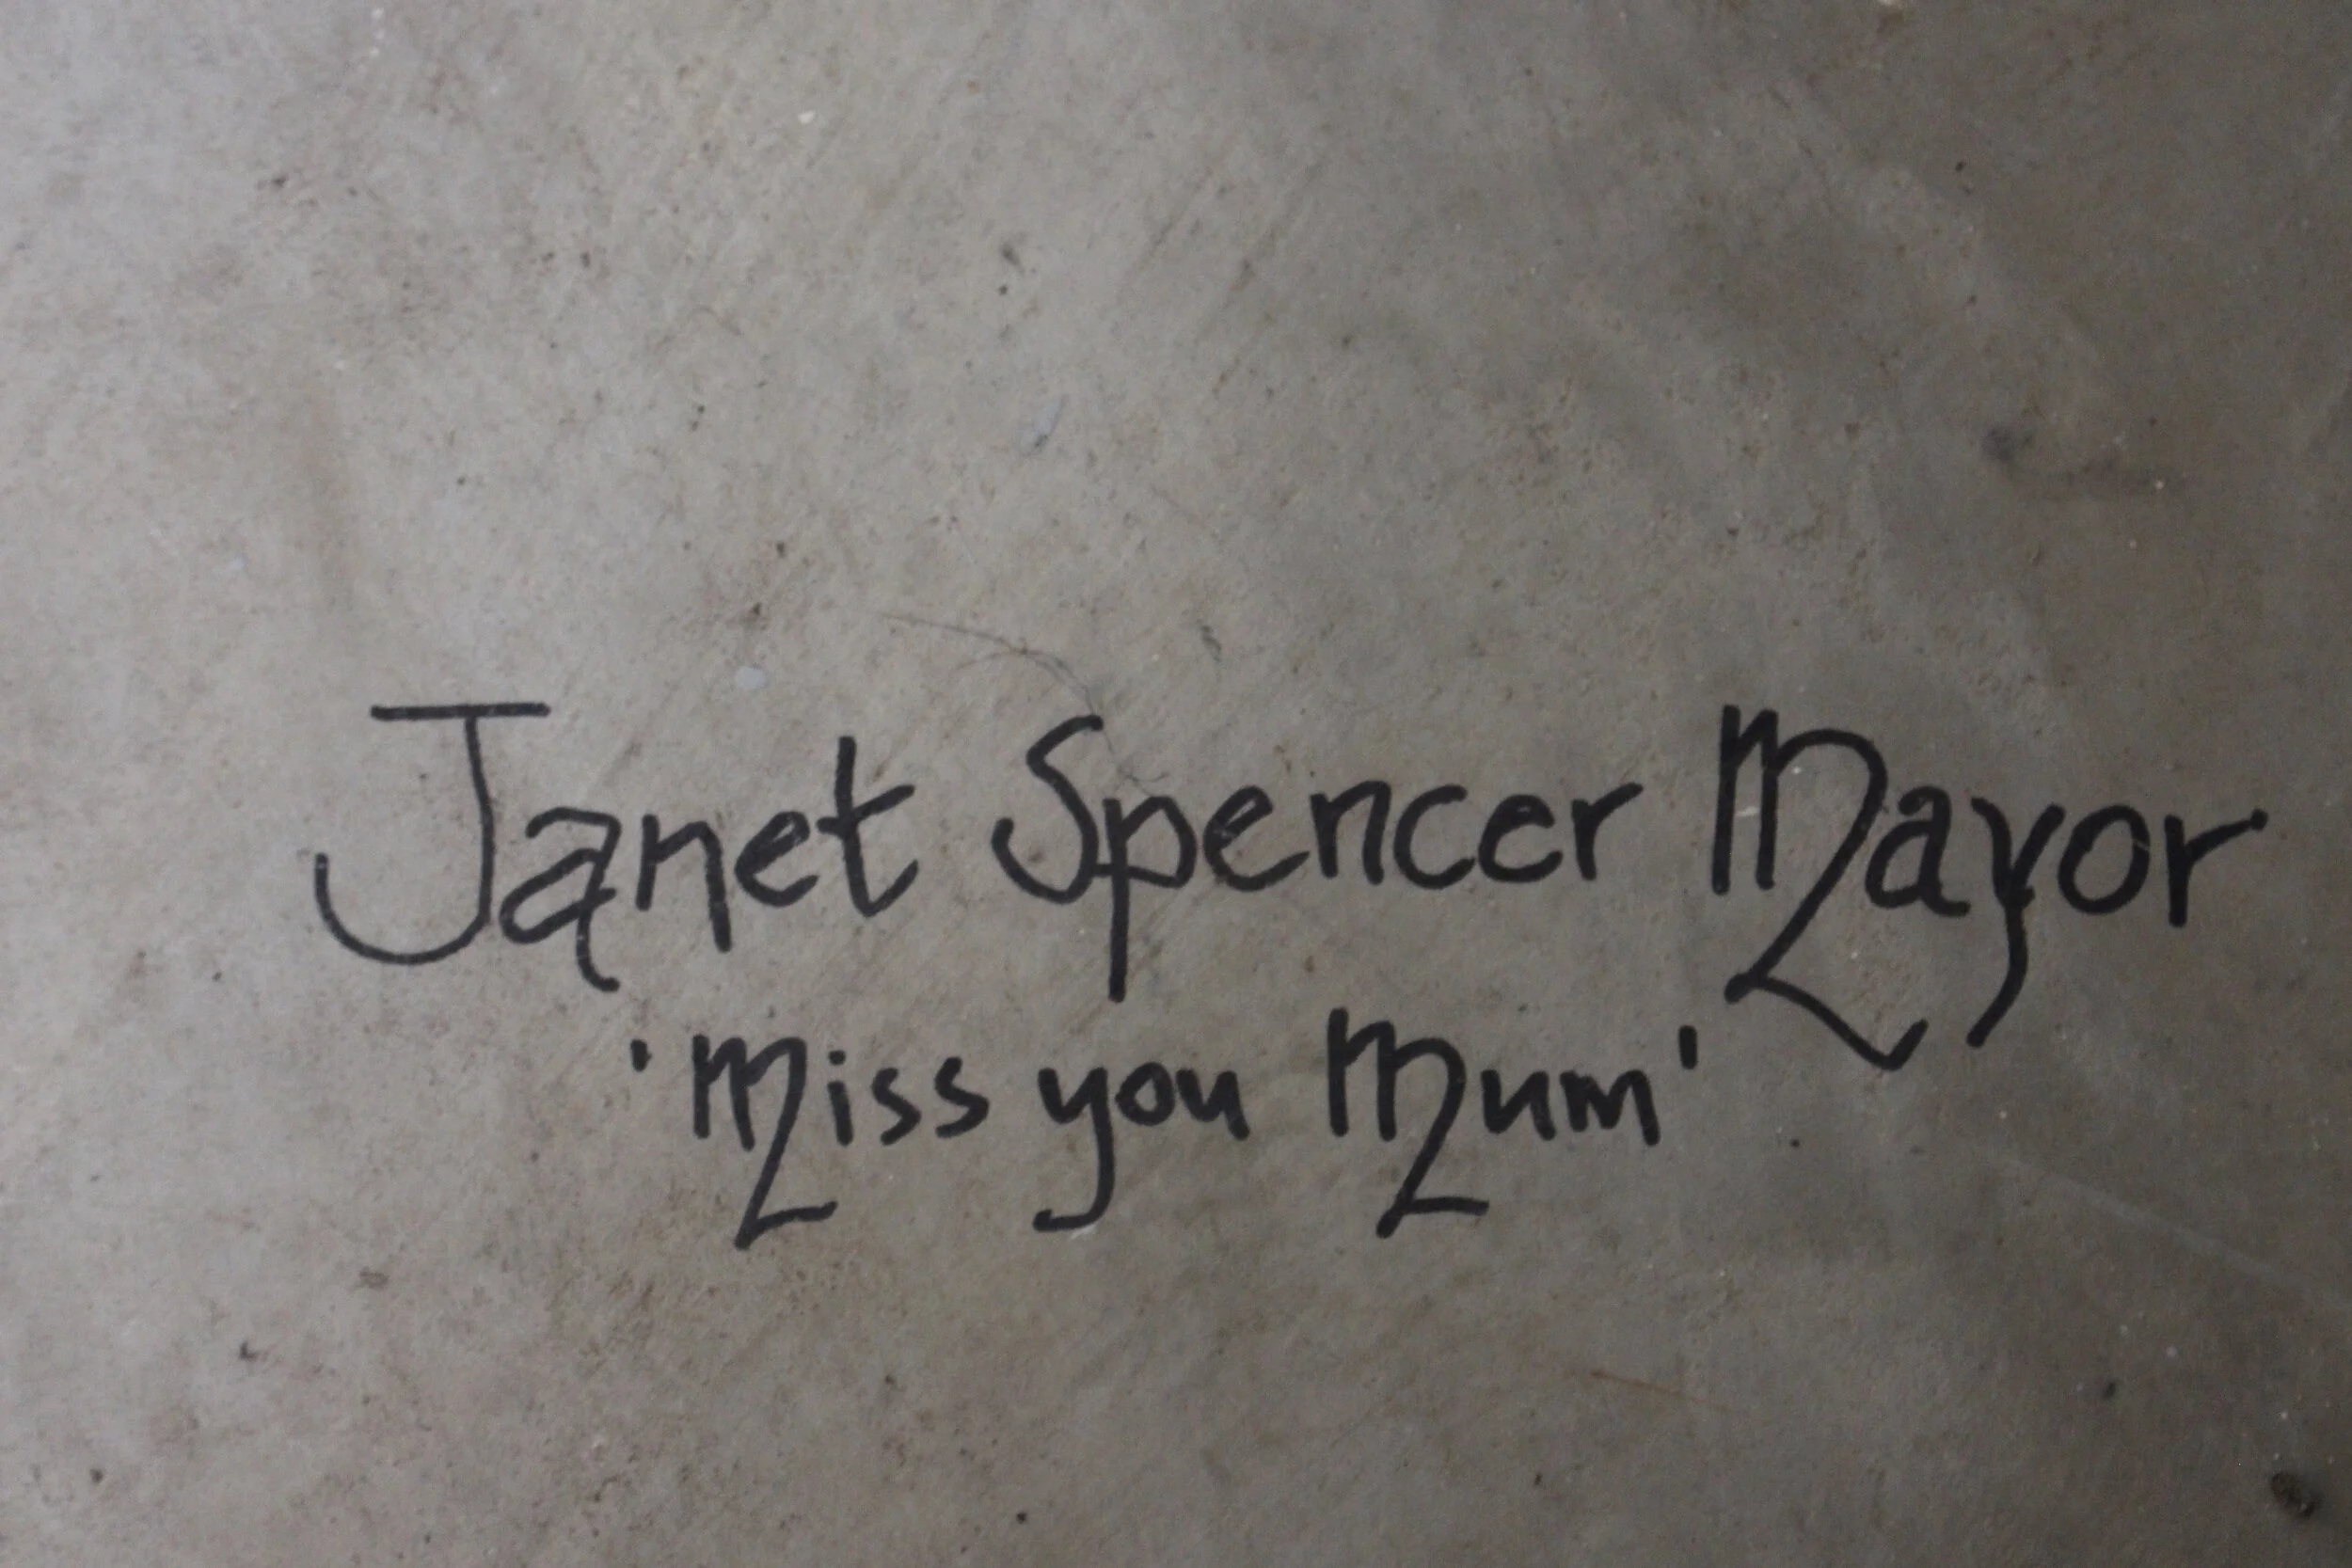 Janet Spencer Mayor
'Miss you Mum'